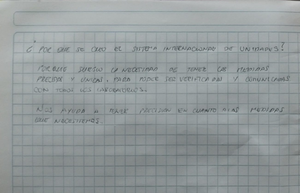 ¿ POR QUE SE CREO EL SISTEMA INTERNACIONAL DE UNIDADES?
PORQUE SURGIO LA NECESIDAD DE TENER LA MEDIDAS
PRECISA Y UNICAS, PARA PODER SER VERIFICADAS Y COMUNICADAS
CON TODOS LOS LABORATORIOS.
NOS AYUDA A TENER PRECISION EN CUANTO A LAS MEDIDAS
QUE NECESITEMOS.